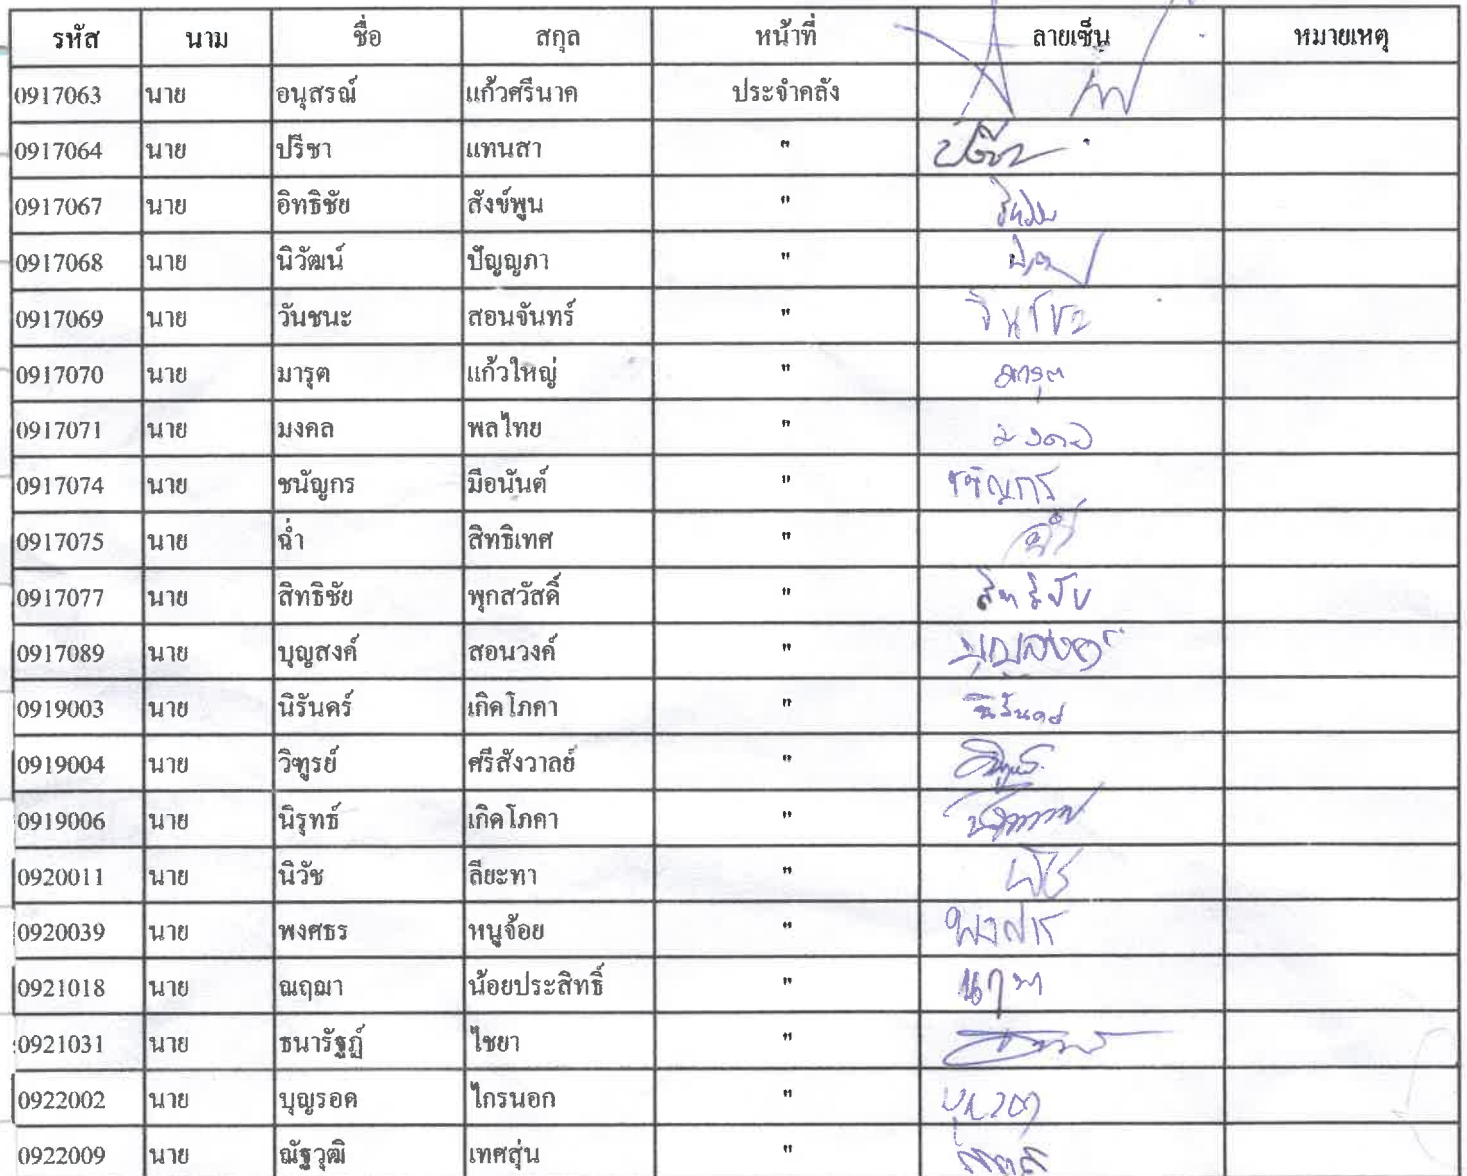 รหัส นาม ชื่อ สกุล หน้าที่ ลายเซ็น หมายเหตุ
0917063 นาย อนุสรณ์ แก้วศรีนาค ประจำคลัง
0917064 นาย ปรีชา แทนสา " ปรีชา
0917067 นาย อิทธิชัย สังข์พูน "
0917068 นาย นิวัฒน์ ปัญญภา "
0917069 นาย วันชนะ สอนจันทร์ "
0917070 นาย มารุต แก้วใหญ่ " มารุต
0917071 นาย มงคล พลไทย " มงคล
0917074 นาย ชนัญกร มีอนันต์ " ชนัญกร
0917075 นาย ฉ่ำ สิทธิเทศ " ฉ่ำ
0917077 นาย สิทธิชัย พุกสวัสดิ์ " สิทธิชัย
0917089 นาย บุญสงค์ สอนวงค์ " บุญสงค์
0919003 นาย นิรันดร์ เกิดโภคา " นิรันดร์
0919004 นาย วิฑูรย์ ศรีสังวาลย์ "
0919006 นาย นิรุทธ์ เกิดโภคา "
0920011 นาย นิวัช ลียะทา "
0920039 นาย พงศธร หนูจ้อย "
0921018 นาย ณฤฌา น้อยประสิทธิ์ "
0921031 นาย ธนารัฐฏ์ ไชยา "
0922002 นาย บุญรอด ไกรนอก "
0922009 นาย ณัฐวุฒิ เทศสุ่น "